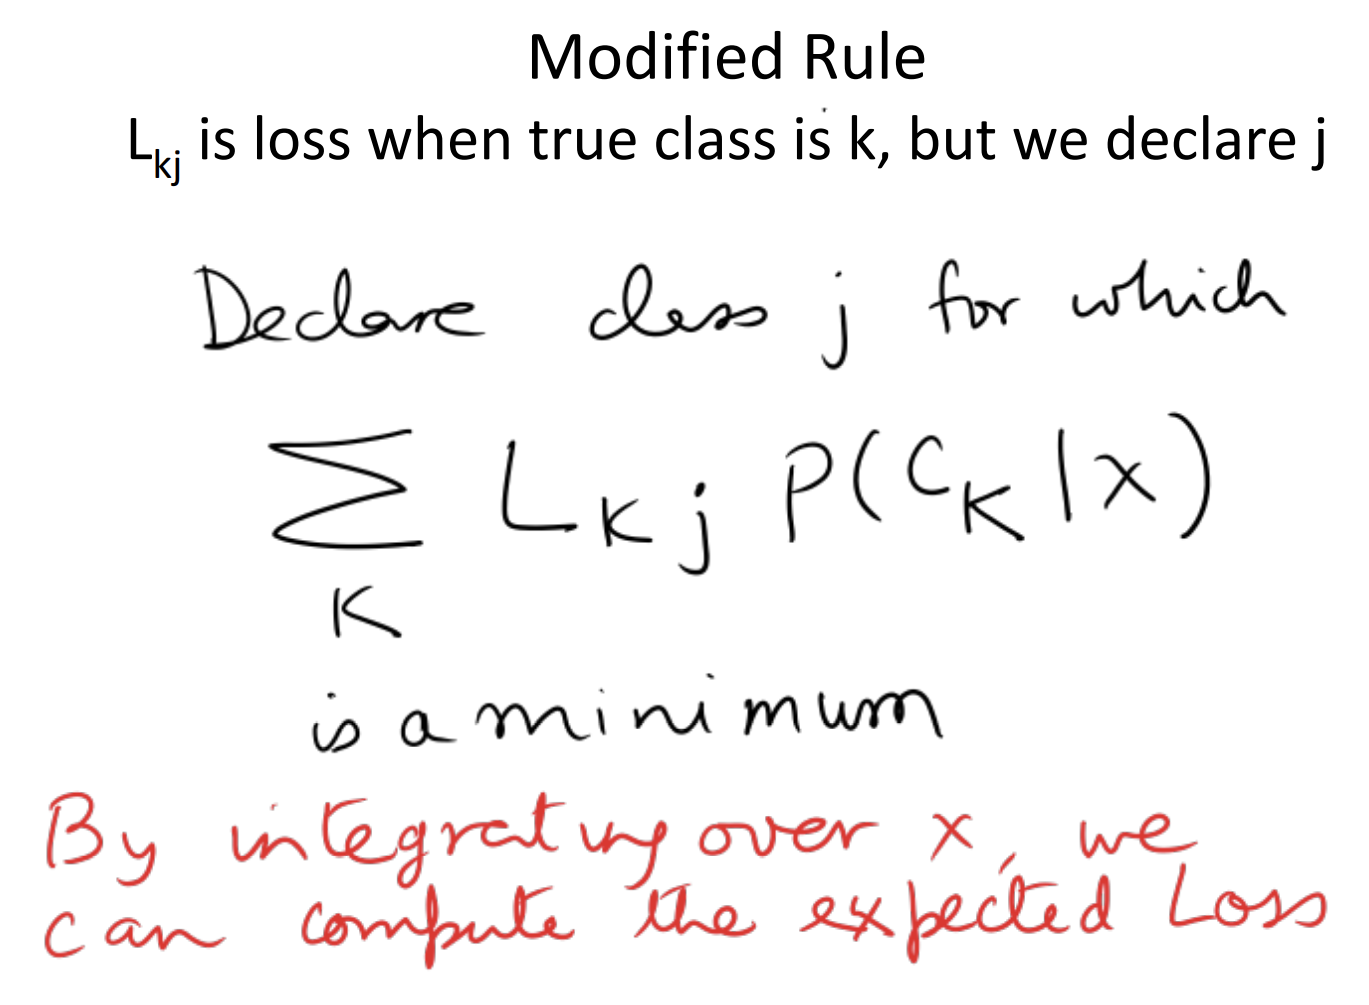 Modified Rule
L_kj is loss when true class is k, but we declare j
Declare class j for which
∑ L_Kj P(C_K | x)
K
is a minimum
By integrating over x, we
can compute the expected Loss